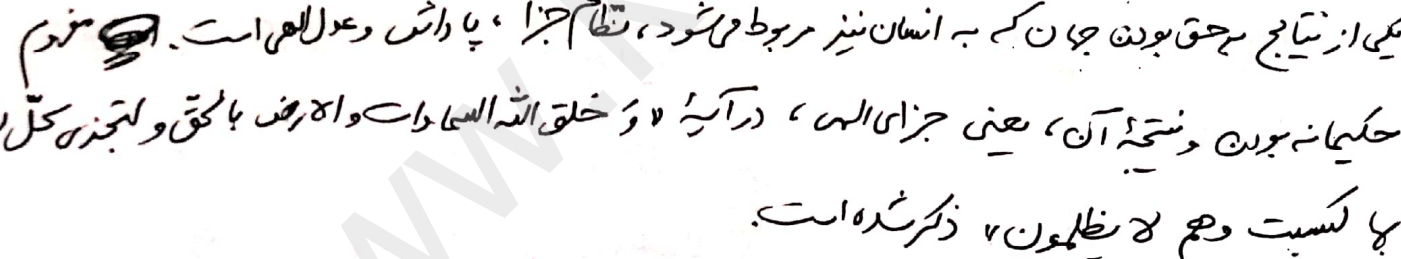 یکی از نتایج به حق بودن جهان که به انسان نیز مربوط می‌شود، نظام جزا، پاداش و عدل الهی است. لزوم
حکیمانه بودن و نتیجهٔ آن، یعنی جزای الهی، در آیهٔ «وَ خلق الله السماوات و الارض بالحق و لتجزی کلّ
بما کسبت و هم لا یظلمون» ذکر شده است.